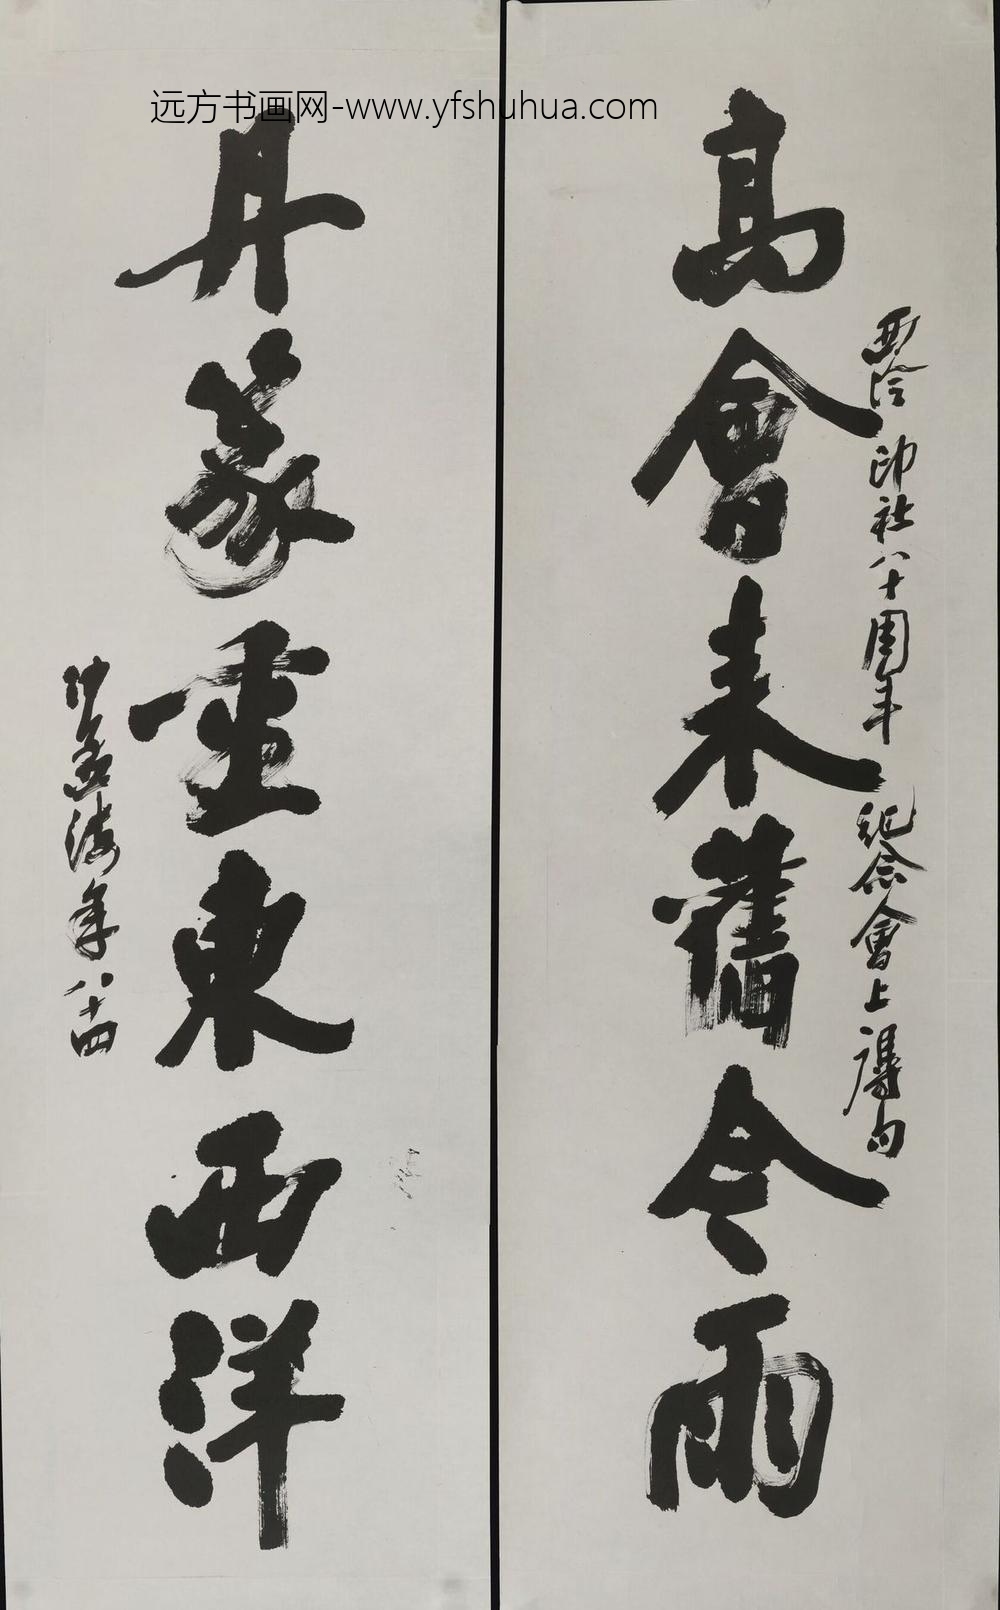 远方书画网-www.yfshuhua.com
高會来舊今雨
西泠印社八十周年紀念會上句
丹篆重東西洋
沙孟海年八十四